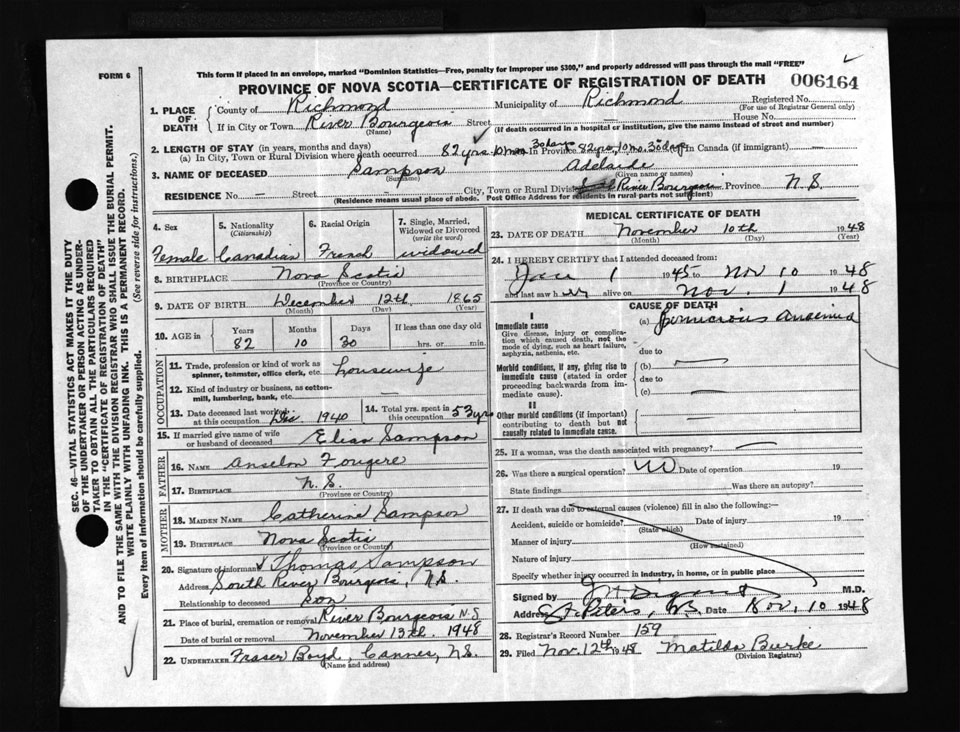 This form if placed in an envelope, marked "Dominion Statistics—Free, penalty for improper use $300," and properly addressed will pass through the mail "FREE"
FORM 6
PROVINCE OF NOVA SCOTIA—CERTIFICATE OF REGISTRATION OF DEATH
006164
SEC. 46—VITAL STATISTICS ACT MAKES IT THE DUTY
OF THE UNDERTAKER OR PERSON ACTING AS UNDER-
TAKER TO OBTAIN ALL THE PARTICULARS REQUIRED
IN THE "CERTIFICATE OF REGISTRATION OF DEATH"
AND TO FILE THE SAME WITH THE DIVISION REGISTRAR WHO SHALL ISSUE THE BURIAL PERMIT.
WRITE PLAINLY WITH UNFADING INK. THIS IS A PERMANENT RECORD.
Every item of information should be carefully supplied. (See reverse side for instructions.)
1. PLACE OF DEATH
County of Richmond Municipality of Richmond Registered No.
(For use of Registrar General only)
If in City or Town River Bourgeois Street House No.
(Name) (If death occurred in a hospital or institution, give the name instead of street and number)
2. LENGTH OF STAY (in years, months and days)
(a) In City, Town or Rural Division where death occurred 82 yrs. 10 mo. 30 days In Province 82 yrs. 10 mo. 30 days In Canada (if immigrant) —
3. NAME OF DECEASED Sampson Adelaide
(Surname) (Given name or names)
RESIDENCE No. — Street — City, Town or Rural Division River Bourgeois Province N.S.
(Residence means usual place of abode. Post Office Address for residents in rural parts not sufficient)
4. Sex
Female
5. Nationality
(Citizenship)
Canadian
6. Racial Origin
French
7. Single, Married,
Widowed or Divorced
(write the word)
widowed
8. BIRTHPLACE Nova Scotia
(Province or Country)
9. DATE OF BIRTH December 12th. 1865
(Month) (Day) (Year)
10. AGE IN
Years Months Days If less than one day old
82 10 30 hrs. or min.
OCCUPATION
11. Trade, profession or kind of work as
spinner, teamster, office clerk, etc. housewife
12. Kind of industry or business, as cotton-
mill, lumbering, bank, etc. —
13. Date deceased last worked
at this occupation Dec. 1940
14. Total yrs. spent in
this occupation 53 yrs
15. If married give name of wife
or husband of deceased Elias Sampson
FATHER
16. NAME Anselm Fougere
17. BIRTHPLACE N.S.
(Province or Country)
MOTHER
18. MAIDEN NAME Catherine Sampson
19. BIRTHPLACE Nova Scotia
(Province or Country)
20. Signature of informant Thomas Sampson
Address South River Bourgeois, N.S.
Relationship to deceased son
21. Place of burial, cremation or removal River Bourgeois N.S
Date of burial or removal November 13th. 1948
22. UNDERTAKER Fraser Boyd, Cannes, N.S.
(Name and address)
MEDICAL CERTIFICATE OF DEATH
23. DATE OF DEATH November 10th 1948
(Month) (Day) (Year)
24. I HEREBY CERTIFY that I attended deceased from:
Jan 1 1945 to Nov 10 1948
and last saw her alive on Nov. 1 1948
CAUSE OF DEATH
I
Immediate cause
Give disease, injury or complica-
tion which caused death, not the
mode of dying, such as heart failure,
asphyxia, asthenia, etc.
(a) pernicious anaemia
due to
Morbid conditions, if any, giving rise to
immediate cause (stated in order
proceeding backwards from im-
mediate cause).
(b) —
due to
(c) —
II
Other morbid conditions (if important)
contributing to death but not
causally related to immediate cause.
25. If a woman, was the death associated with pregnancy? —
26. Was there a surgical operation? No Date of operation 19
State findings Was there an autopsy?
27. If death was due to external causes (violence) fill in also the following:—
Accident, suicide or homicide? Date of injury 19
(State which)
Manner of injury
(How sustained)
Nature of injury
Specify whether injury occurred in industry, in home, or in public place
Signed by M.D.
Address St. Peters, N.S. Date Nov. 10 1948
28. Registrar's Record Number 159
29. Filed Nov. 12th 1948 Matilda Burke
(Division Registrar)